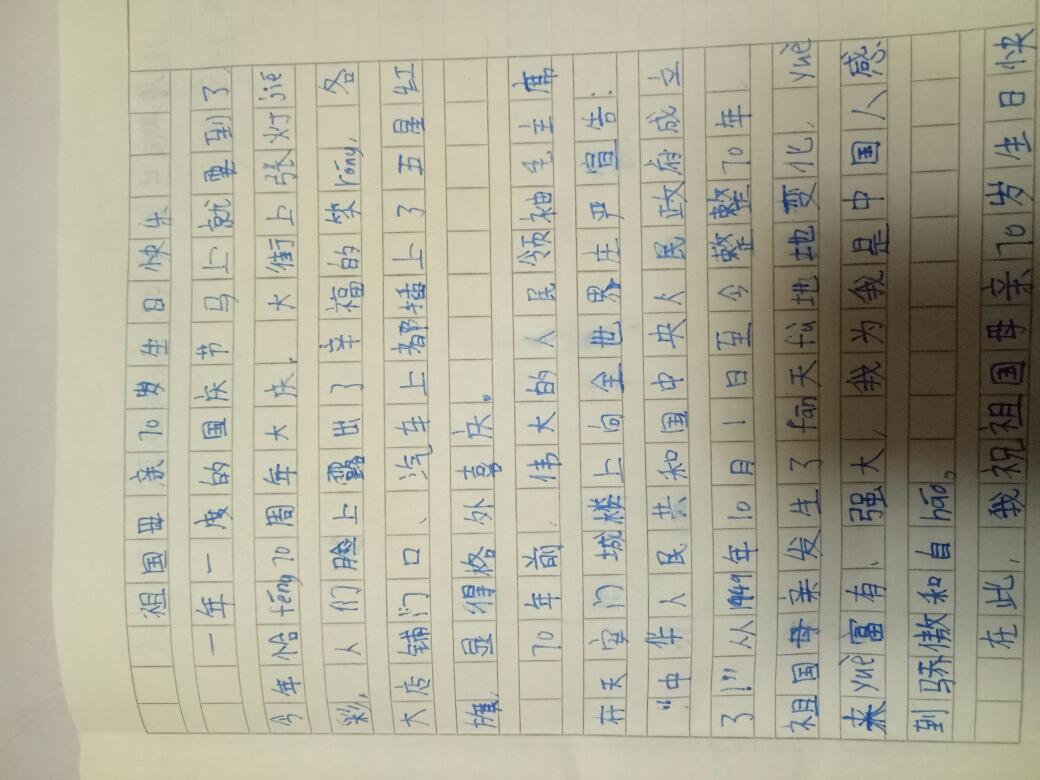 祖国母亲70岁生日快乐
一年一度的国庆节马上就要到了
今年恰féng70周年大庆，大街上张灯jiē
彩，人们脸上露出了幸福的笑róng，各
大店铺门口、汽车上都插上了五星红
旗，显得格外喜庆。
70年前，伟大的人民领袖毛主席
在天安门城楼上向全世界庄严宣告：
“中华人民共和国中央人民政府成立
了！”从1949年10月1日至今整整70年，
祖国母亲发生了fān天fù地地变化，yuè
来yuè富有、强大，我为我是中国人感
到骄傲和自háo。
在此，我祝祖国母亲70岁生日快